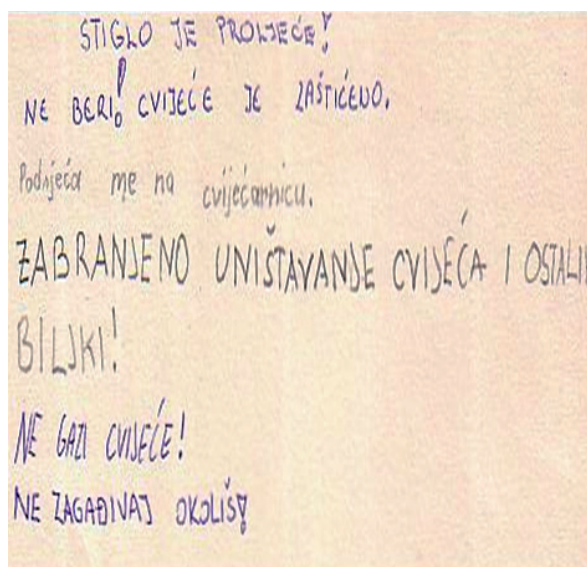 STIGLO JE PROLJEĆE!
NE BERI! CVIJEĆE JE ZAŠTIĆENO.
Podsjeća me na cvijećarnicu.
ZABRANJENO UNIŠTAVANJE CVIJEĆA I OSTALI
BILJKI!
NE GAZI CVIJEĆE!
NE ZAGAĐIVAJ OKOLIŠ!